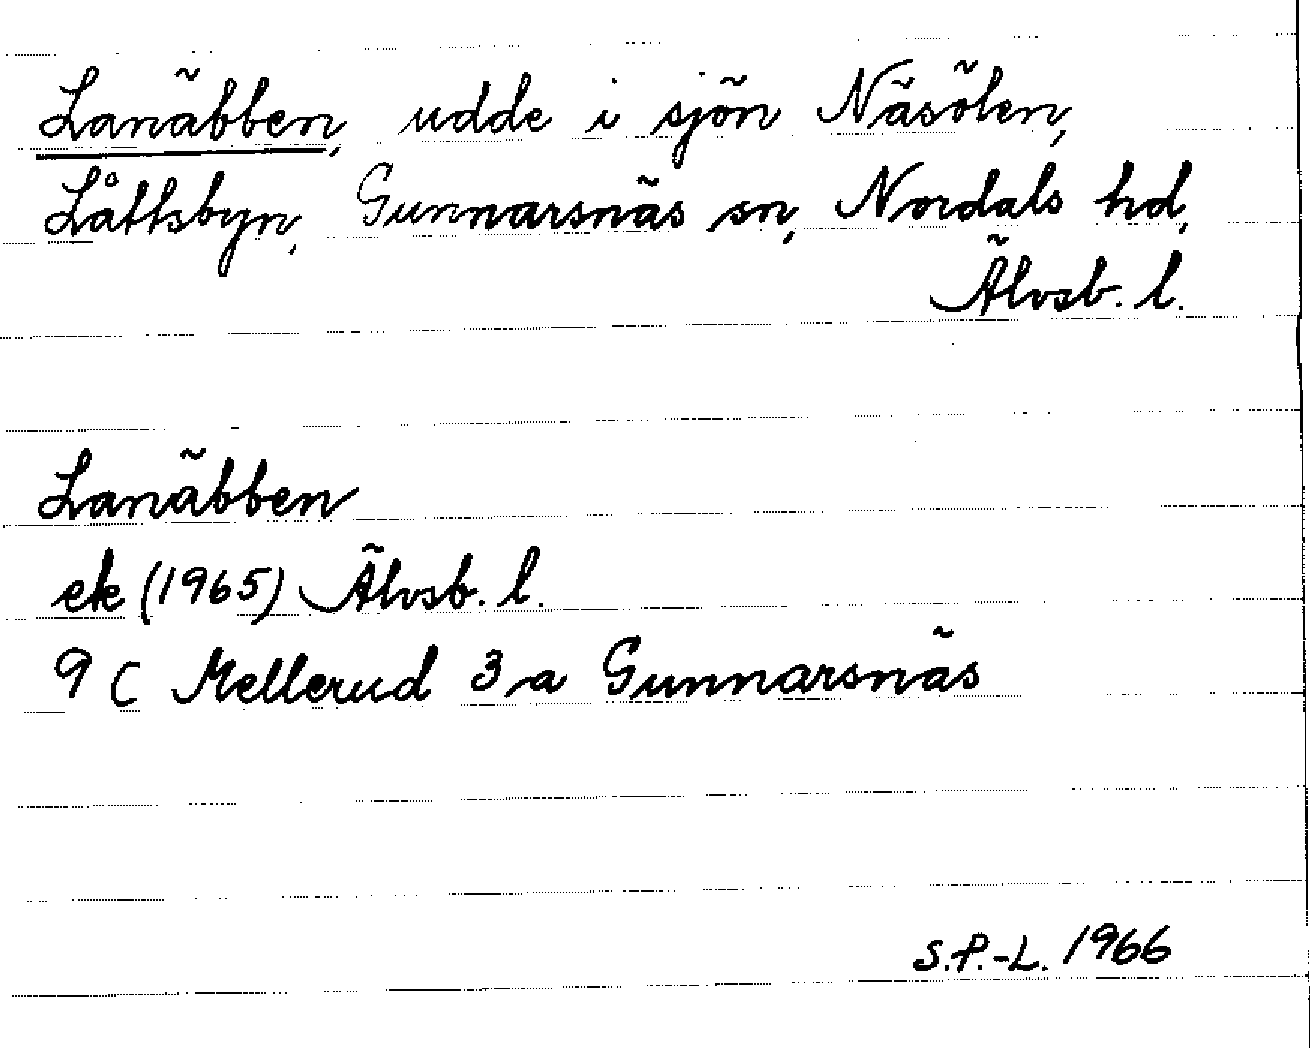 Lanäbben, udde i sjön Näsölen,
Låttsbyn, Gunnarsnäs sn, Nordals hd,
Älvsb. l.
Lanäbben
ek (1965) Älvsb. l.
9 C Mellerud 3 a Gunnarsnäs
S.P.-L. 1966